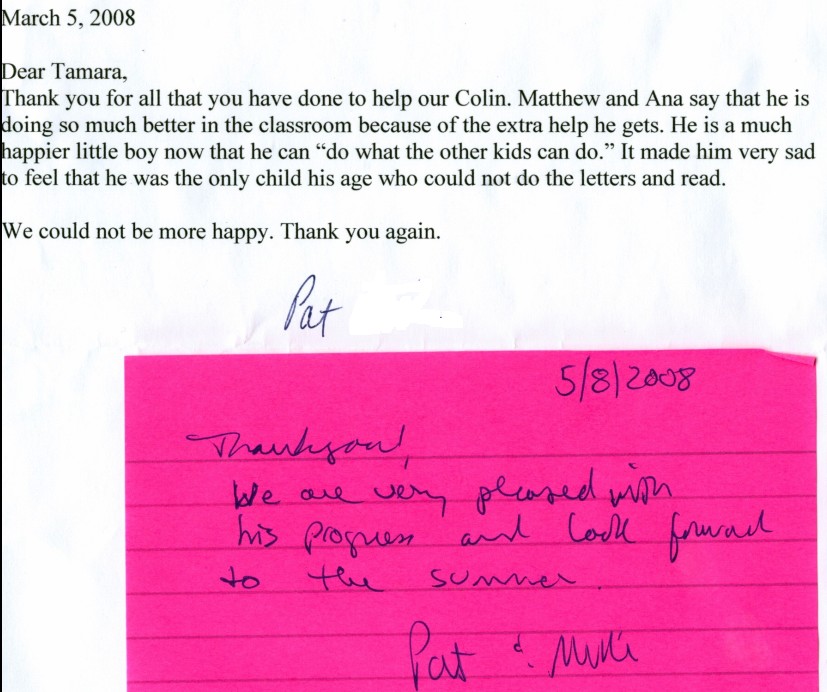 March 5, 2008
Dear Tamara,
Thank you for all that you have done to help our Colin. Matthew and Ana say that he is
doing so much better in the classroom because of the extra help he gets. He is a much
happier little boy now that he can “do what the other kids can do.” It made him very sad
to feel that he was the only child his age who could not do the letters and read.
We could not be more happy. Thank you again.
Pat
5/8/2008
Thank you!
We are very pleased with
his progress and look forward
to the summer.
Pat &